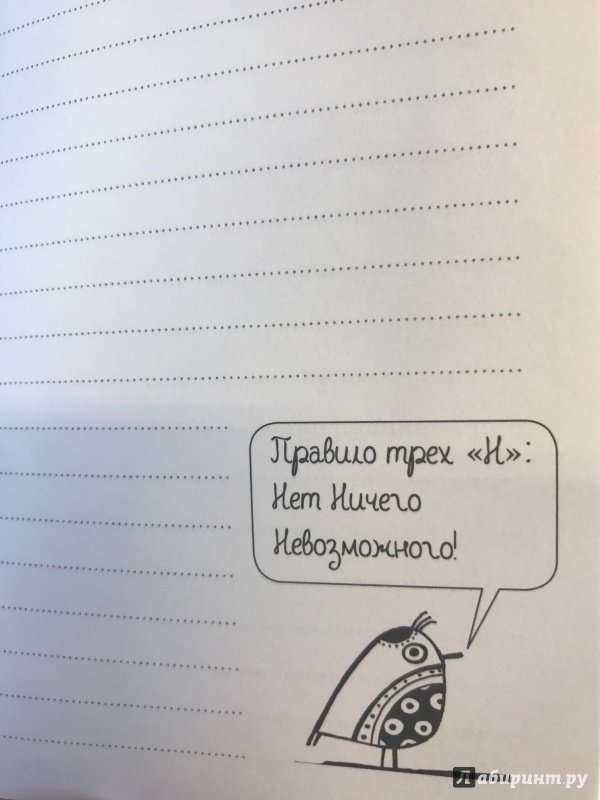 Правило трех «Н»:
Нет Ничего
Невозможного!
Лабиринт.ру